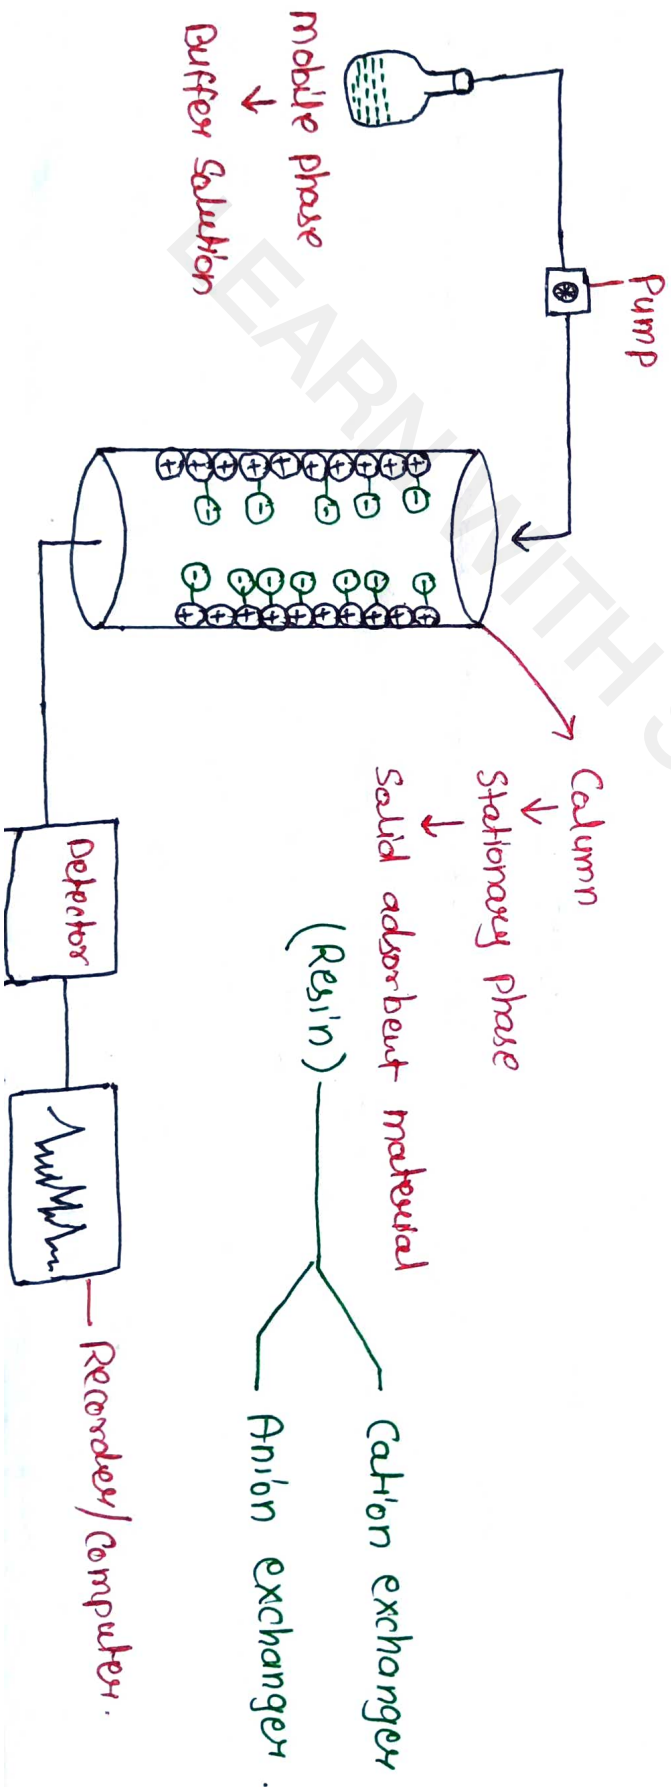 Pump
Mobile phase
↓
Buffer Solution
Column
↓
Stationary phase
↓
Solid adsorbent material
(Resin)
Cation exchanger
Anion exchanger.
Detector
Recorder/Computer.
LEARN WITH S